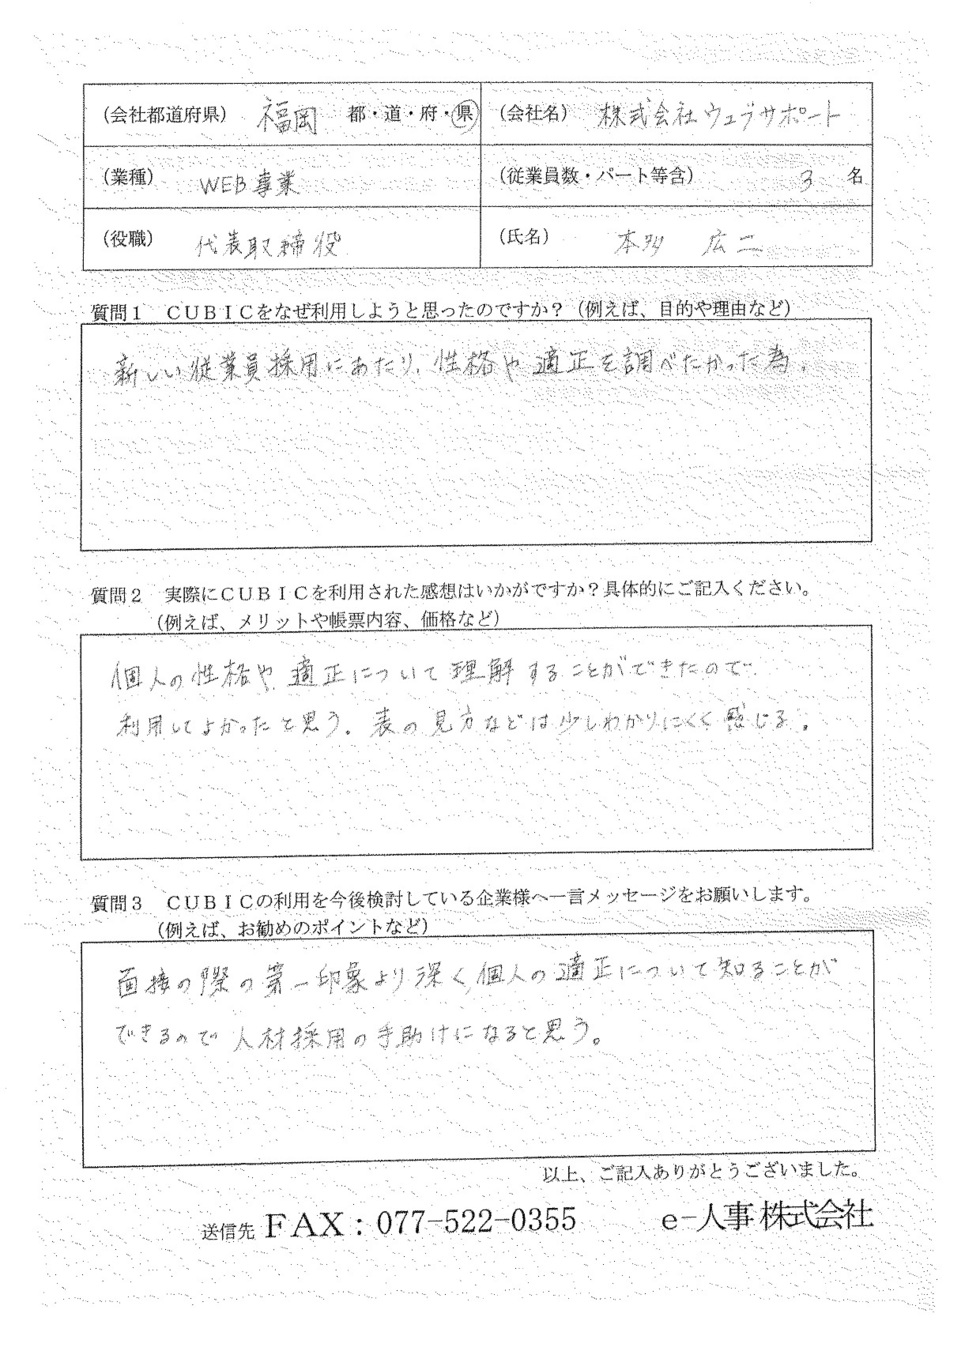 (会社都道府県) 福岡 都・道・府・県 (会社名) 株式会社ウェブサポート
(業種) WEB事業 (従業員数・パート等含) 3 名
(役職) 代表取締役 (氏名) 本多 広二
質問１ ＣＵＢＩＣをなぜ利用しようと思ったのですか？（例えば、目的や理由など）
新しい従業員採用にあたり、性格や適正を調べたかった為。
質問２ 実際にＣＵＢＩＣを利用された感想はいかがですか？具体的にご記入ください。
（例えば、メリットや帳票内容、価格など）
個人の性格や、適正について理解することができたので
利用してよかったと思う。表の見方などは少しわかりにくく感じる。
質問３ ＣＵＢＩＣの利用を今後検討している企業様へ一言メッセージをお願いします。
（例えば、お勧めのポイントなど）
面接の際の第一印象より深く、個人の適正について知ることが
できるので人材採用の手助けになると思う。
以上、ご記入ありがとうございました。
送信先 ＦＡＸ：077-522-0355 e-人事株式会社